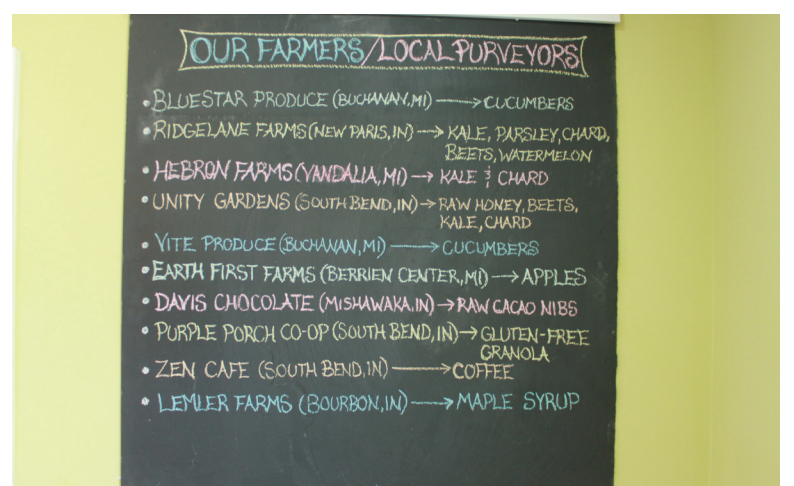 OUR FARMERS/LOCAL PURVEYORS
• BLUESTAR PRODUCE (BUCHANAN, MI) → CUCUMBERS
• RIDGELANE FARMS (NEW PARIS, IN) → KALE, PARSLEY, CHARD,
BEETS, WATERMELON
• HEBRON FARMS (VANDALIA, MI) → KALE & CHARD
• UNITY GARDENS (SOUTH BEND, IN) → RAW HONEY, BEETS,
KALE, CHARD
• VITE PRODUCE (BUCHANAN, MI) → CUCUMBERS
• EARTH FIRST FARMS (BERRIEN CENTER, MI) → APPLES
• DAVIS CHOCOLATE (MISHAWAKA, IN) → RAW CACAO NIBS
• PURPLE PORCH CO-OP (SOUTH BEND, IN) → GLUTEN-FREE
GRANOLA
• ZEN CAFE (SOUTH BEND, IN) → COFFEE
• LEMLER FARMS (BOURBON, IN) → MAPLE SYRUP